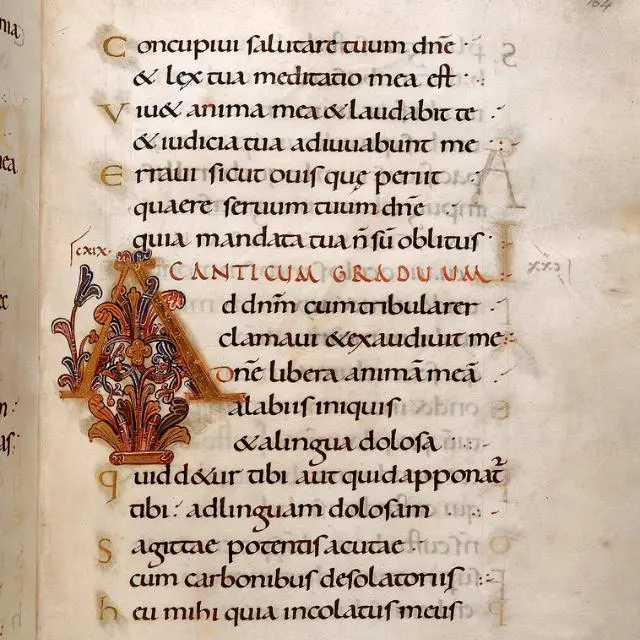 164
Concupiui salutare tuum dnē
& lex tua meditatio mea est
Viu& anima mea & laudabit te
& iudicia tua adiuuabunt me
Erraui sicut ouis quę periit
quaere seruum tuum dnē
quia mandata tua ñ sū oblitus
·cxix·
CANTICUM GRADUUM
Ad dnm̄ cum tribularer
clamaui & exaudiuit me
Dnē libera animā meā
alabiis iniquis
& alingua dolosa
quid d&ur tibi aut quid apponat̄
tibi : adlinguam dolosam
Sagittae potentis acutae
cum carbonibus desolatoriis
heu mihi quia incolatus meus